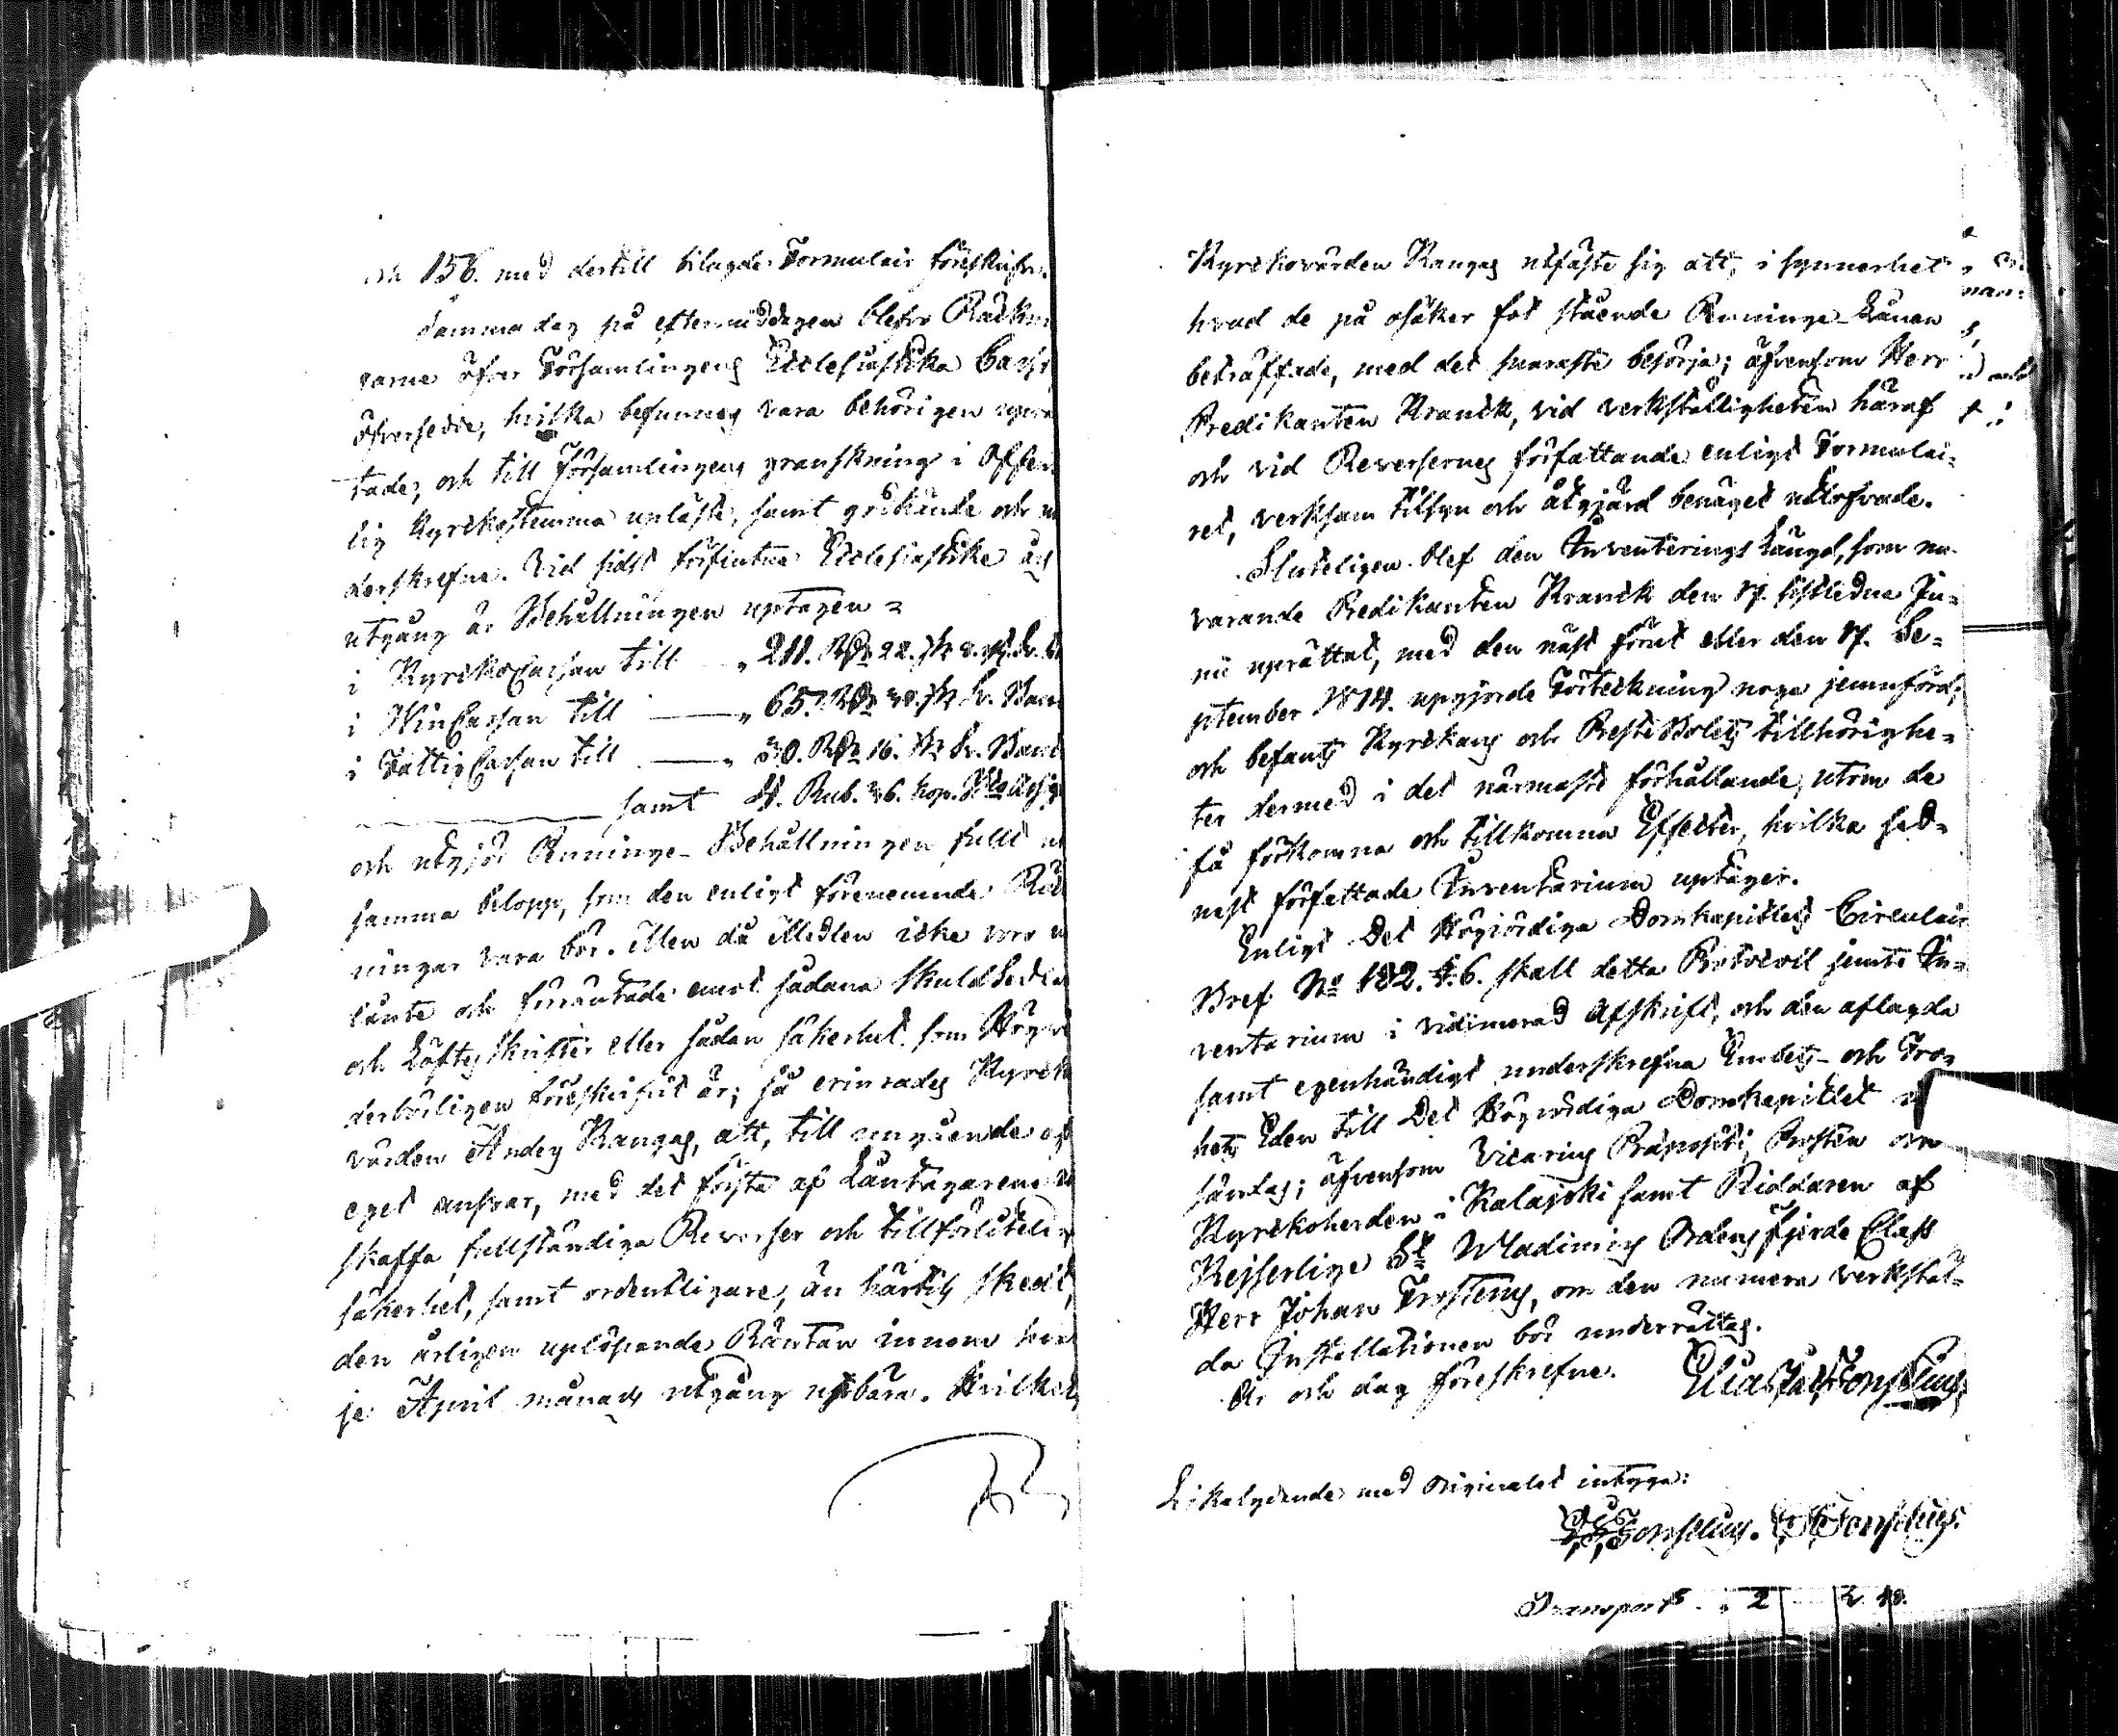 och 156. med dertill bilagde Formulair föreskifva.
Samma dag på eftermiddagen blefvo Räkn
garne öfver Församlingens Ecclesiastika Cass
öfversedde, hvilka befunnos vara behörigen uprä
tade, och till Församlingens granskning i offen
lig Kyrkostemma upläste, samt godkände och un
derskrefne. Vid sidst förflutna Ecclesiastike års
utgång är Behållningen uptagen =
i KyrkoCassan till " 211. RDr 22. sk 8. rst. Sv. B
i WinCassan till " 65. RDr 38. sk Sv. Banc
i FattigCassan till " 30. RDr 16. sk Sv. Banc
samt 4. Rub. 36. kop. Bco Assign
och utgjör Penninge-Behållningen fullt
samma belopp, som den enligt förenemnde Räk
ningar vara bör. Men då Medlen icke voro u
lånte och förräntade emot sådana Skuldsedlar
och Löftesskrifter eller sådan säkerhet, som Högvör
derbörligen föreskrifvit är; så erinrades Kyrko
värden Anders Kangas, att, till undgående af
eget ansvar, med det första af Låntagarene
skaffa fullständiga Reverser och tillförlitelig
säkerhet, samt ordentligare, än härtils skedt,
den årligen uplöpande Räntan innom hvar
je April månads utgång upbära. Hvilket
Kyrkovärden Kangas utfäste sig att, i synnerhet
hvad de på osäker fot stående Penninge-Lånen
beträffade, med det snaraste besörja; äfvensom Herr
Predikanten Kranck, vid verkställigheten häraf
och vid Reversernes författande enligt Formulai=
ret, verksam tilsyn och åtgjärd benäget utlofvade.
Sluteligen blef den Inventerings Längd, som nu-
varande Predikanten Kranck den 17. sistledne Ju=
nii uprättat, med den näst förut eller den 17. Se=
ptember 1814. upgjorde Förteckning noga jemnförd;
och befants Kyrkans och PrestBolets tillhörighe=
ter dermed i det närmaste förhållande, utom de
få förkomna och tillkomna Effecter, hvilka sed=
nast författade Inventarium uptager.
Enligt Det Högvördiga Domkapitlets Circulair
Bref No 182. §. 6. skall detta Protocoll jemte In=
ventarium i vidimerad Afskrift, och den aflagda
samt egenhändigt underskrefna Embets- och Tro=
hets Eden till Det Högvördiga Domkapitlet
sändas; äfvensom Vicarius Præpositi, Prosten och
Kyrkoherden i Kalajoki samt Riddaren af
Kejserlige St Wladimirs Ordens fjerde Class
Herr Johan Frosterus, om den numera verkstäl=
da Installationen bör underrättas.
År och dag föreskrefne. Elias Jac. Fonselius
Likalydande med Originalet intyga:
Fonselius. Fonselius.
Transport . " 2 2. 18.